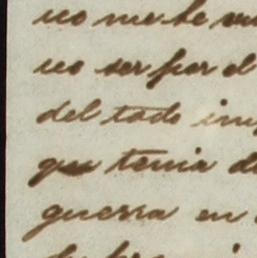 no me he
no ser por el
del todo im
que tenia d
guerra en